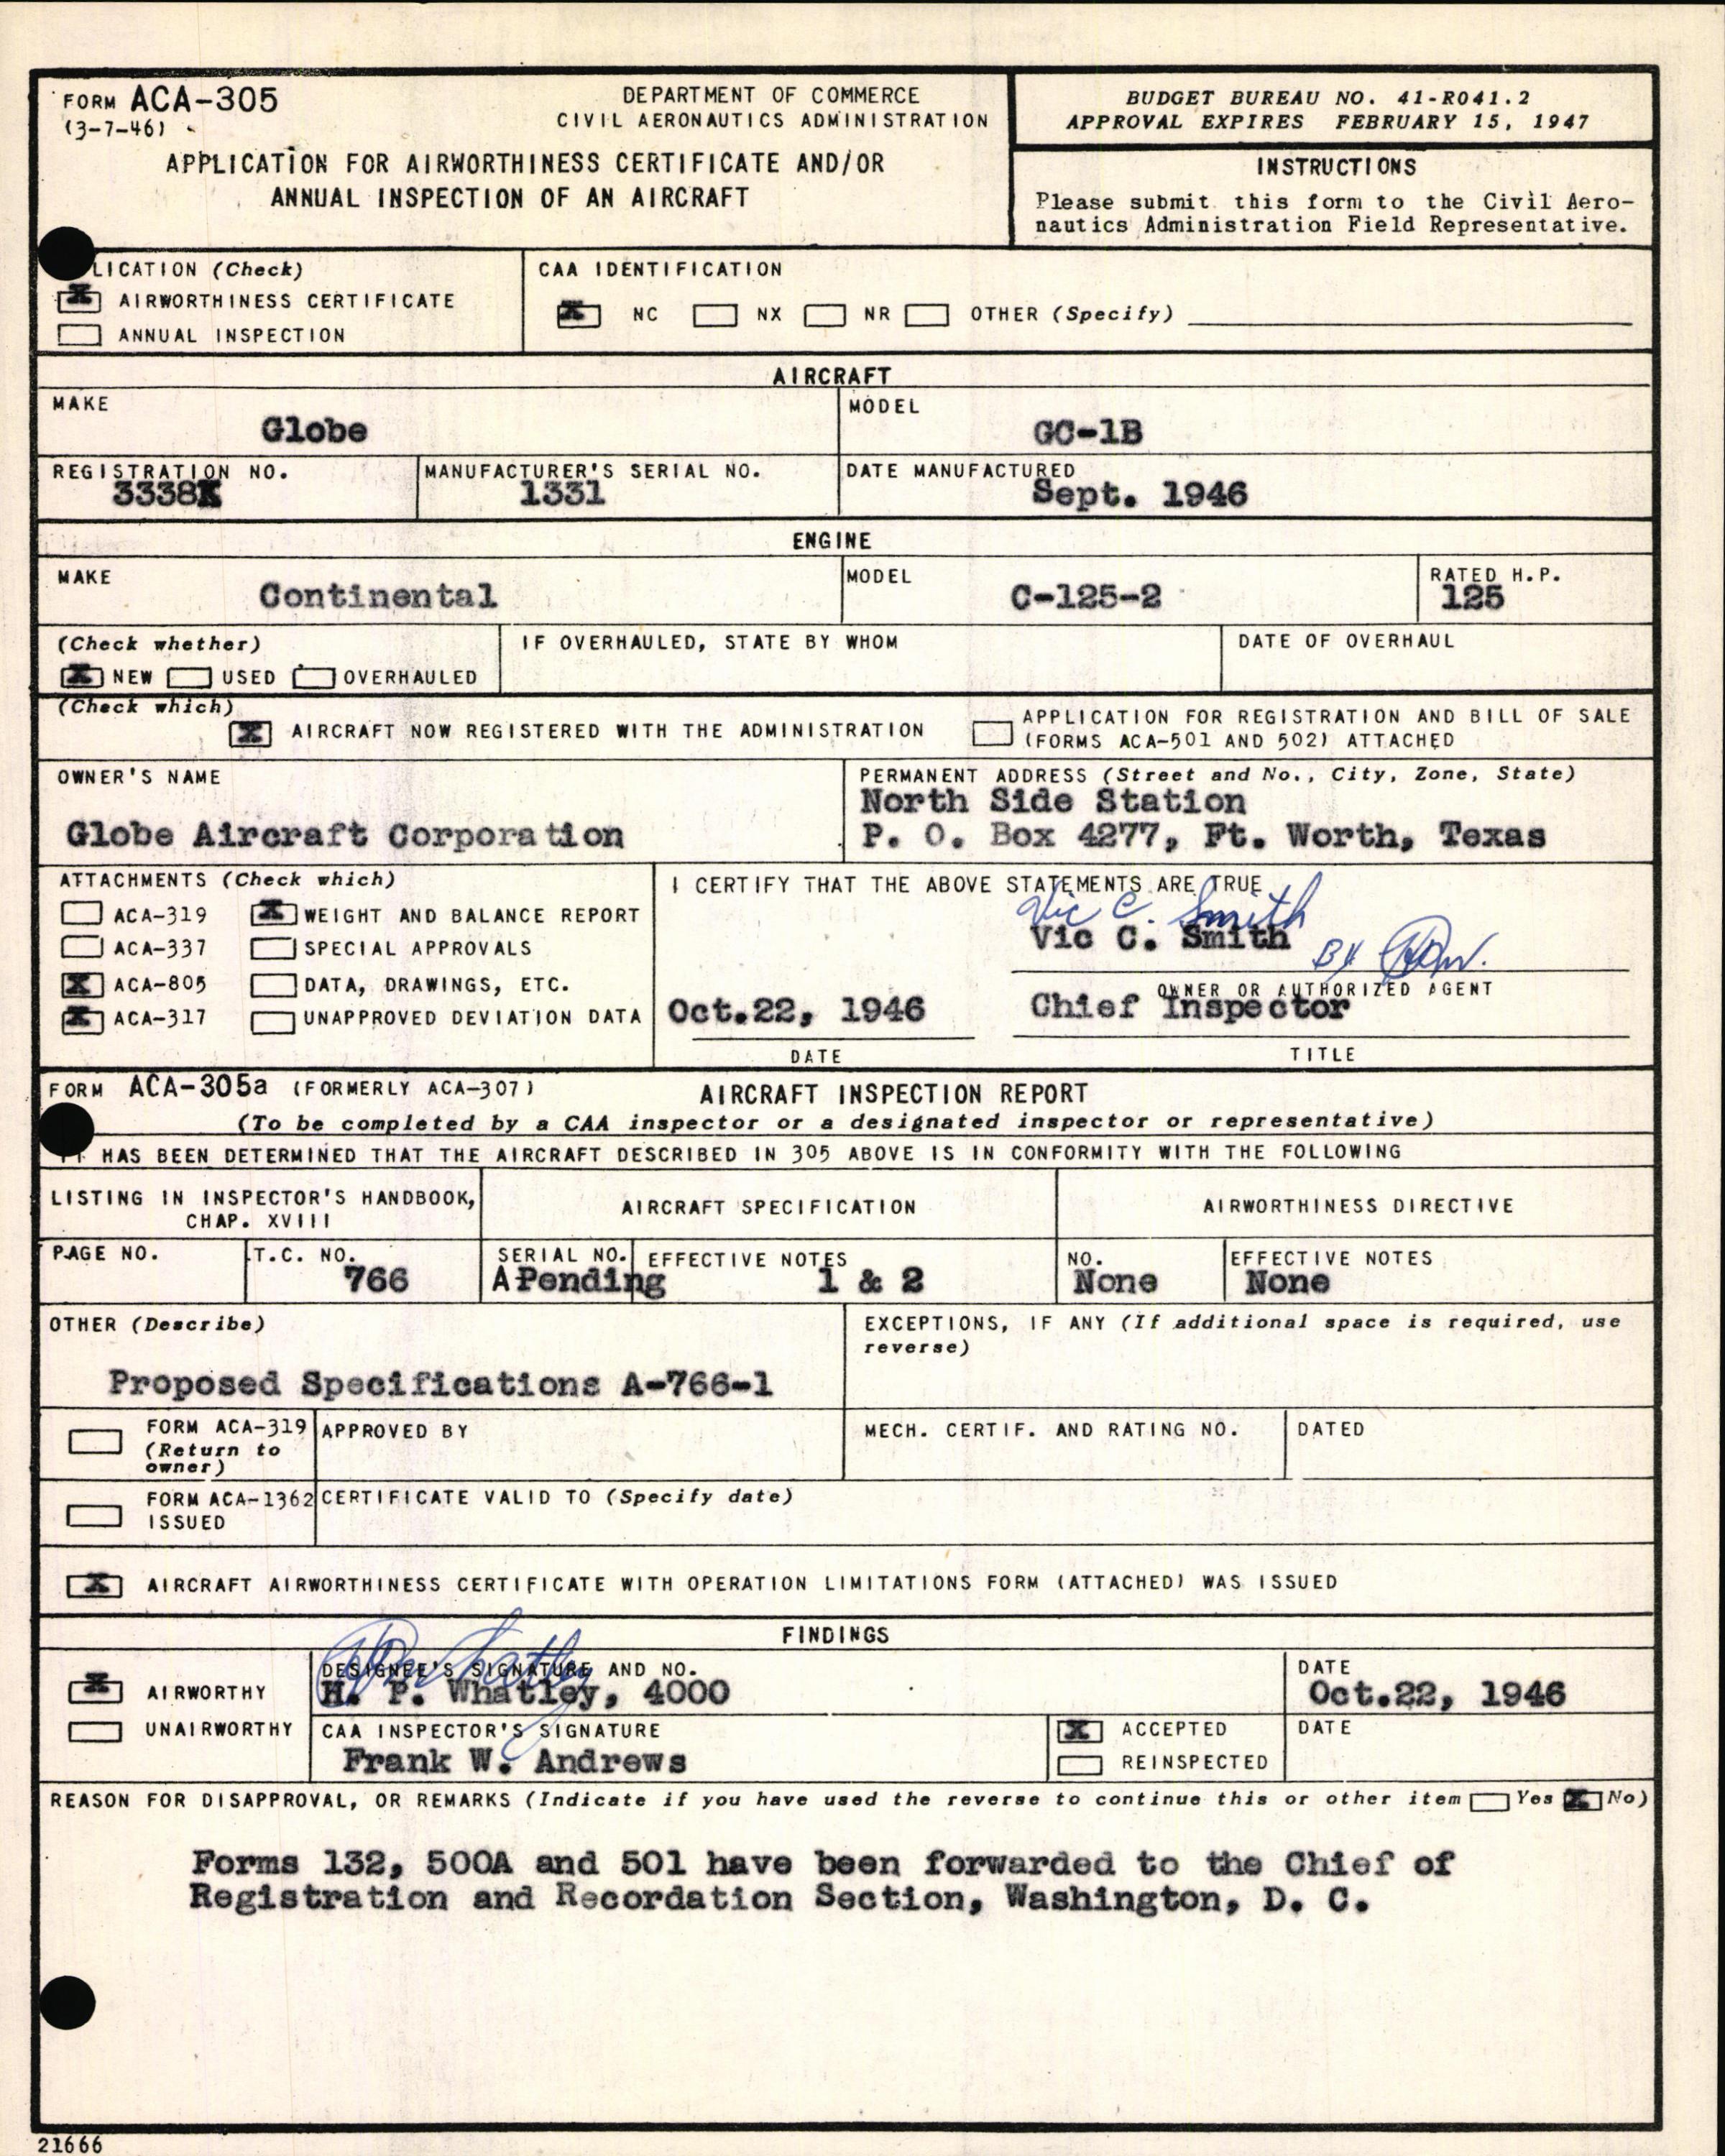 FORM ACA-305
(3-7-46)
DEPARTMENT OF COMMERCE
CIVIL AERONAUTICS ADMINISTRATION
APPLICATION FOR AIRWORTHINESS CERTIFICATE AND/OR
ANNUAL INSPECTION OF AN AIRCRAFT
BUDGET BUREAU NO. 41-R041.2
APPROVAL EXPIRES FEBRUARY 15, 1947
INSTRUCTIONS
Please submit this form to the Civil Aero-
nautics Administration Field Representative.
LICATION (Check)
X AIRWORTHINESS CERTIFICATE
ANNUAL INSPECTION
CAA IDENTIFICATION
X NC NX NR OTHER (Specify)
AIRCRAFT
MAKE
Globe
MODEL
GC-1B
REGISTRATION NO.
3338K
MANUFACTURER'S SERIAL NO.
1331
DATE MANUFACTURED
Sept. 1946
ENGINE
MAKE
Continental
MODEL
C-125-2
RATED H.P.
125
(Check whether)
X NEW USED OVERHAULED
IF OVERHAULED, STATE BY WHOM
DATE OF OVERHAUL
(Check which)
X AIRCRAFT NOW REGISTERED WITH THE ADMINISTRATION
APPLICATION FOR REGISTRATION AND BILL OF SALE
(FORMS ACA-501 AND 502) ATTACHED
OWNER'S NAME
Globe Aircraft Corporation
PERMANENT ADDRESS (Street and No., City, Zone, State)
North Side Station
P. O. Box 4277, Ft. Worth, Texas
ATTACHMENTS (Check which)
ACA-319 X WEIGHT AND BALANCE REPORT
ACA-337 SPECIAL APPROVALS
X ACA-805 DATA, DRAWINGS, ETC.
X ACA-317 UNAPPROVED DEVIATION DATA
I CERTIFY THAT THE ABOVE STATEMENTS ARE TRUE
Vic C. Smith
Vic C. Smith
By
OWNER OR AUTHORIZED AGENT
Oct.22, 1946
Chief Inspector
DATE
TITLE
FORM ACA-305a (FORMERLY ACA-307)
AIRCRAFT INSPECTION REPORT
(To be completed by a CAA inspector or a designated inspector or representative)
IT HAS BEEN DETERMINED THAT THE AIRCRAFT DESCRIBED IN 305 ABOVE IS IN CONFORMITY WITH THE FOLLOWING
LISTING IN INSPECTOR'S HANDBOOK,
CHAP. XVIII
AIRCRAFT SPECIFICATION
AIRWORTHINESS DIRECTIVE
PAGE NO.
T.C. NO.
766
SERIAL NO.
APending
EFFECTIVE NOTES
1 & 2
NO.
None
EFFECTIVE NOTES
None
OTHER (Describe)
Proposed Specifications A-766-1
EXCEPTIONS, IF ANY (If additional space is required, use
reverse)
FORM ACA-319
(Return to
owner)
APPROVED BY
MECH. CERTIF. AND RATING NO.
DATED
FORM ACA-1362
ISSUED
CERTIFICATE VALID TO (Specify date)
X AIRCRAFT AIRWORTHINESS CERTIFICATE WITH OPERATION LIMITATIONS FORM (ATTACHED) WAS ISSUED
FINDINGS
X AIRWORTHY
UNAIRWORTHY
DESIGNEE'S SIGNATURE AND NO.
H. P. Whatley, 4000
DATE
Oct.22, 1946
CAA INSPECTOR'S SIGNATURE
Frank W. Andrews
X ACCEPTED
REINSPECTED
DATE
REASON FOR DISAPPROVAL, OR REMARKS (Indicate if you have used the reverse to continue this or other item Yes X No)
Forms 132, 500A and 501 have been forwarded to the Chief of
Registration and Recordation Section, Washington, D. C.
21666